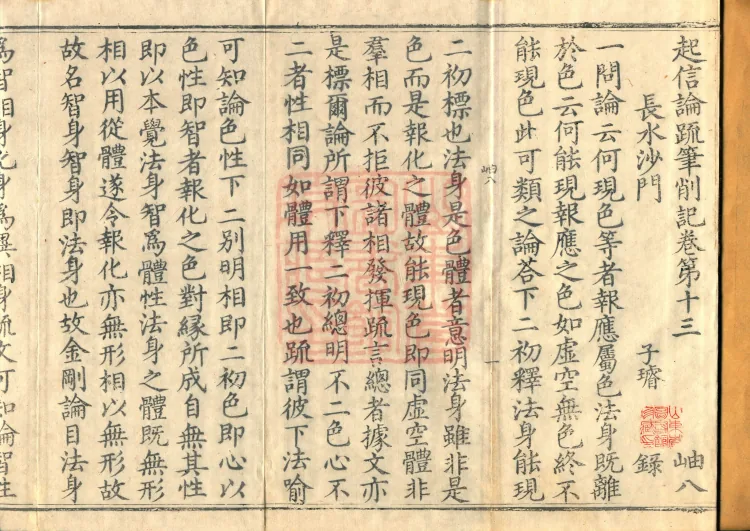 起信論疏筆削記卷第十三 岫八
長水沙門 子璿 錄
一問論云何現色等者報應屬色法身既離
於色云何能現報應之色如虛空無色終不
能現色此可類之論荅下二初釋法身能現
二初標也法身是色體者意明法身雖非是
色而是報化之體故能現色即同虛空體非
羣相而不拒彼諸相發揮疏言總者據文亦
是標爾論所謂下釋二初總明不二色心不
二者性相同如體用一致也疏謂彼下法喻
可知論色性下二別明相即二初色即心以
色性即智者報化之色對緣所成自無其性
即以本覺法身智爲體性法身之體既無形
相以用從體遂令報化亦無形相以無形故
故名智身智身即法身也故金剛論目法身
爲智相身化身爲異相身疏文可知論智性
岫八
一